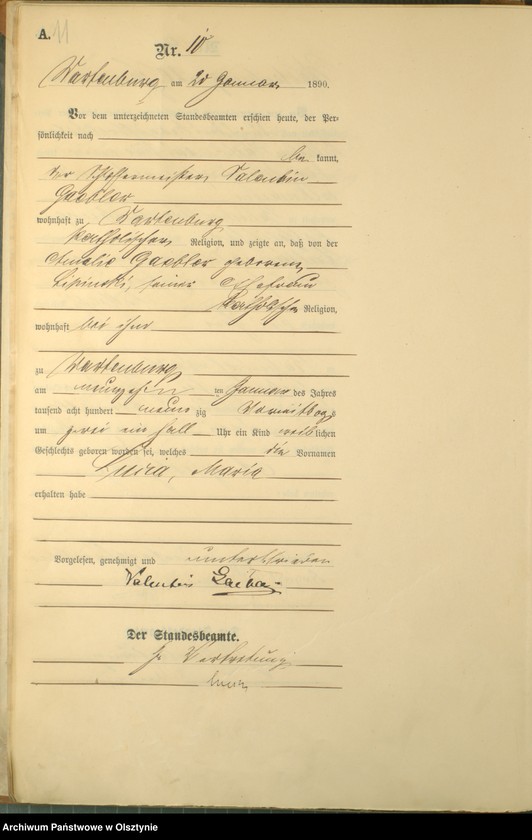 A. 11
Nr. 10
Wartenburg am 20 Januar 1890.
Vor dem unterzeichneten Standesbeamten erschien heute, der Per-
sönlichkeit nach
be kannt,
der Valentin
Gaebler
wohnhaft zu Wartenburg
katholischer Religion, und zeigte an, daß von der
Amalie Gaebler geborenen
Lipinski, seiner Ehefrau
katholischer Religion,
wohnhaft bei ihm
zu Wartenburg
am neunzehn ten Januar des Jahres
tausend acht hundert neun zig Vormittags
um zwei ein halb Uhr ein Kind weib lichen
Geschlechts geboren worden sei, welches die Vornamen
Maria
erhalten habe
Vorgelesen, genehmigt und unterschrieben
Valentin
Der Standesbeamte.
In Vertretung
Archiwum Państwowe w Olsztynie